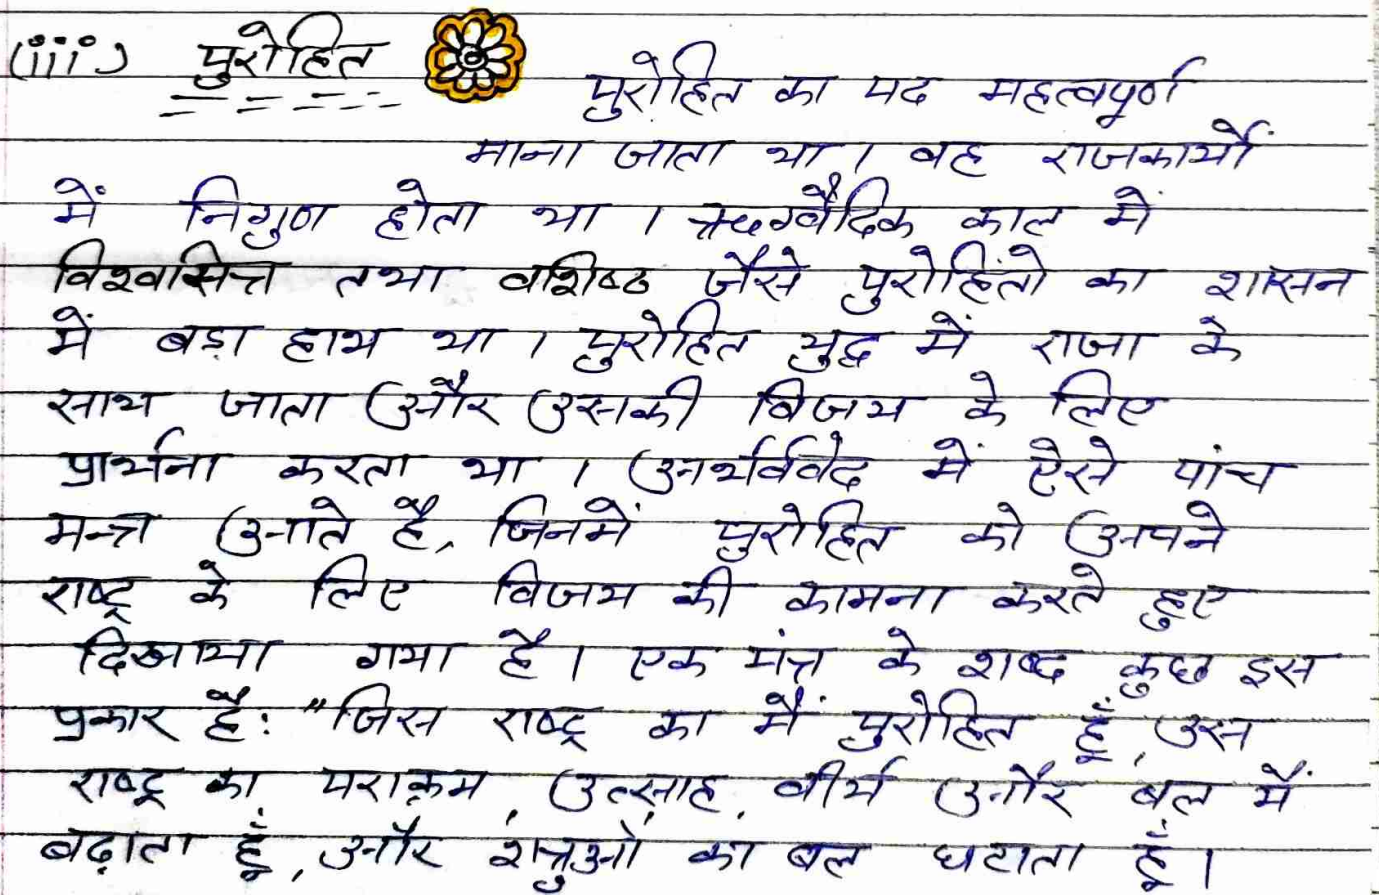 (iii) पुरोहित
पुरोहित का पद महत्वपूर्ण
माना जाता था। वह राजकार्यों
में निगुण होता था। ऋग्वैदिक काल में
विश्वामित्र तथा वशिष्ठ जैसे पुरोहितों का शासन
में बड़ा हाथ था। पुरोहित युद्ध में राजा के
साथ जाता और उसकी विजय के लिए
प्रार्थना करता था। अथर्ववेद में ऐसे पांच
मन्त्र आते है, जिनमें पुरोहित को अपने
राष्ट्र के लिए विजय की कामना करते हुए
दिखाया गया है। एक मंत्र के शब्द कुछ इस
प्रकार है: "जिस राष्ट्र का मैं पुरोहित हूँ, उस
राष्ट्र का पराक्रम, उत्साह, वीर्य और बल मैं
बढ़ाता हूँ, और शत्रुओं का बल घटाता हूँ।